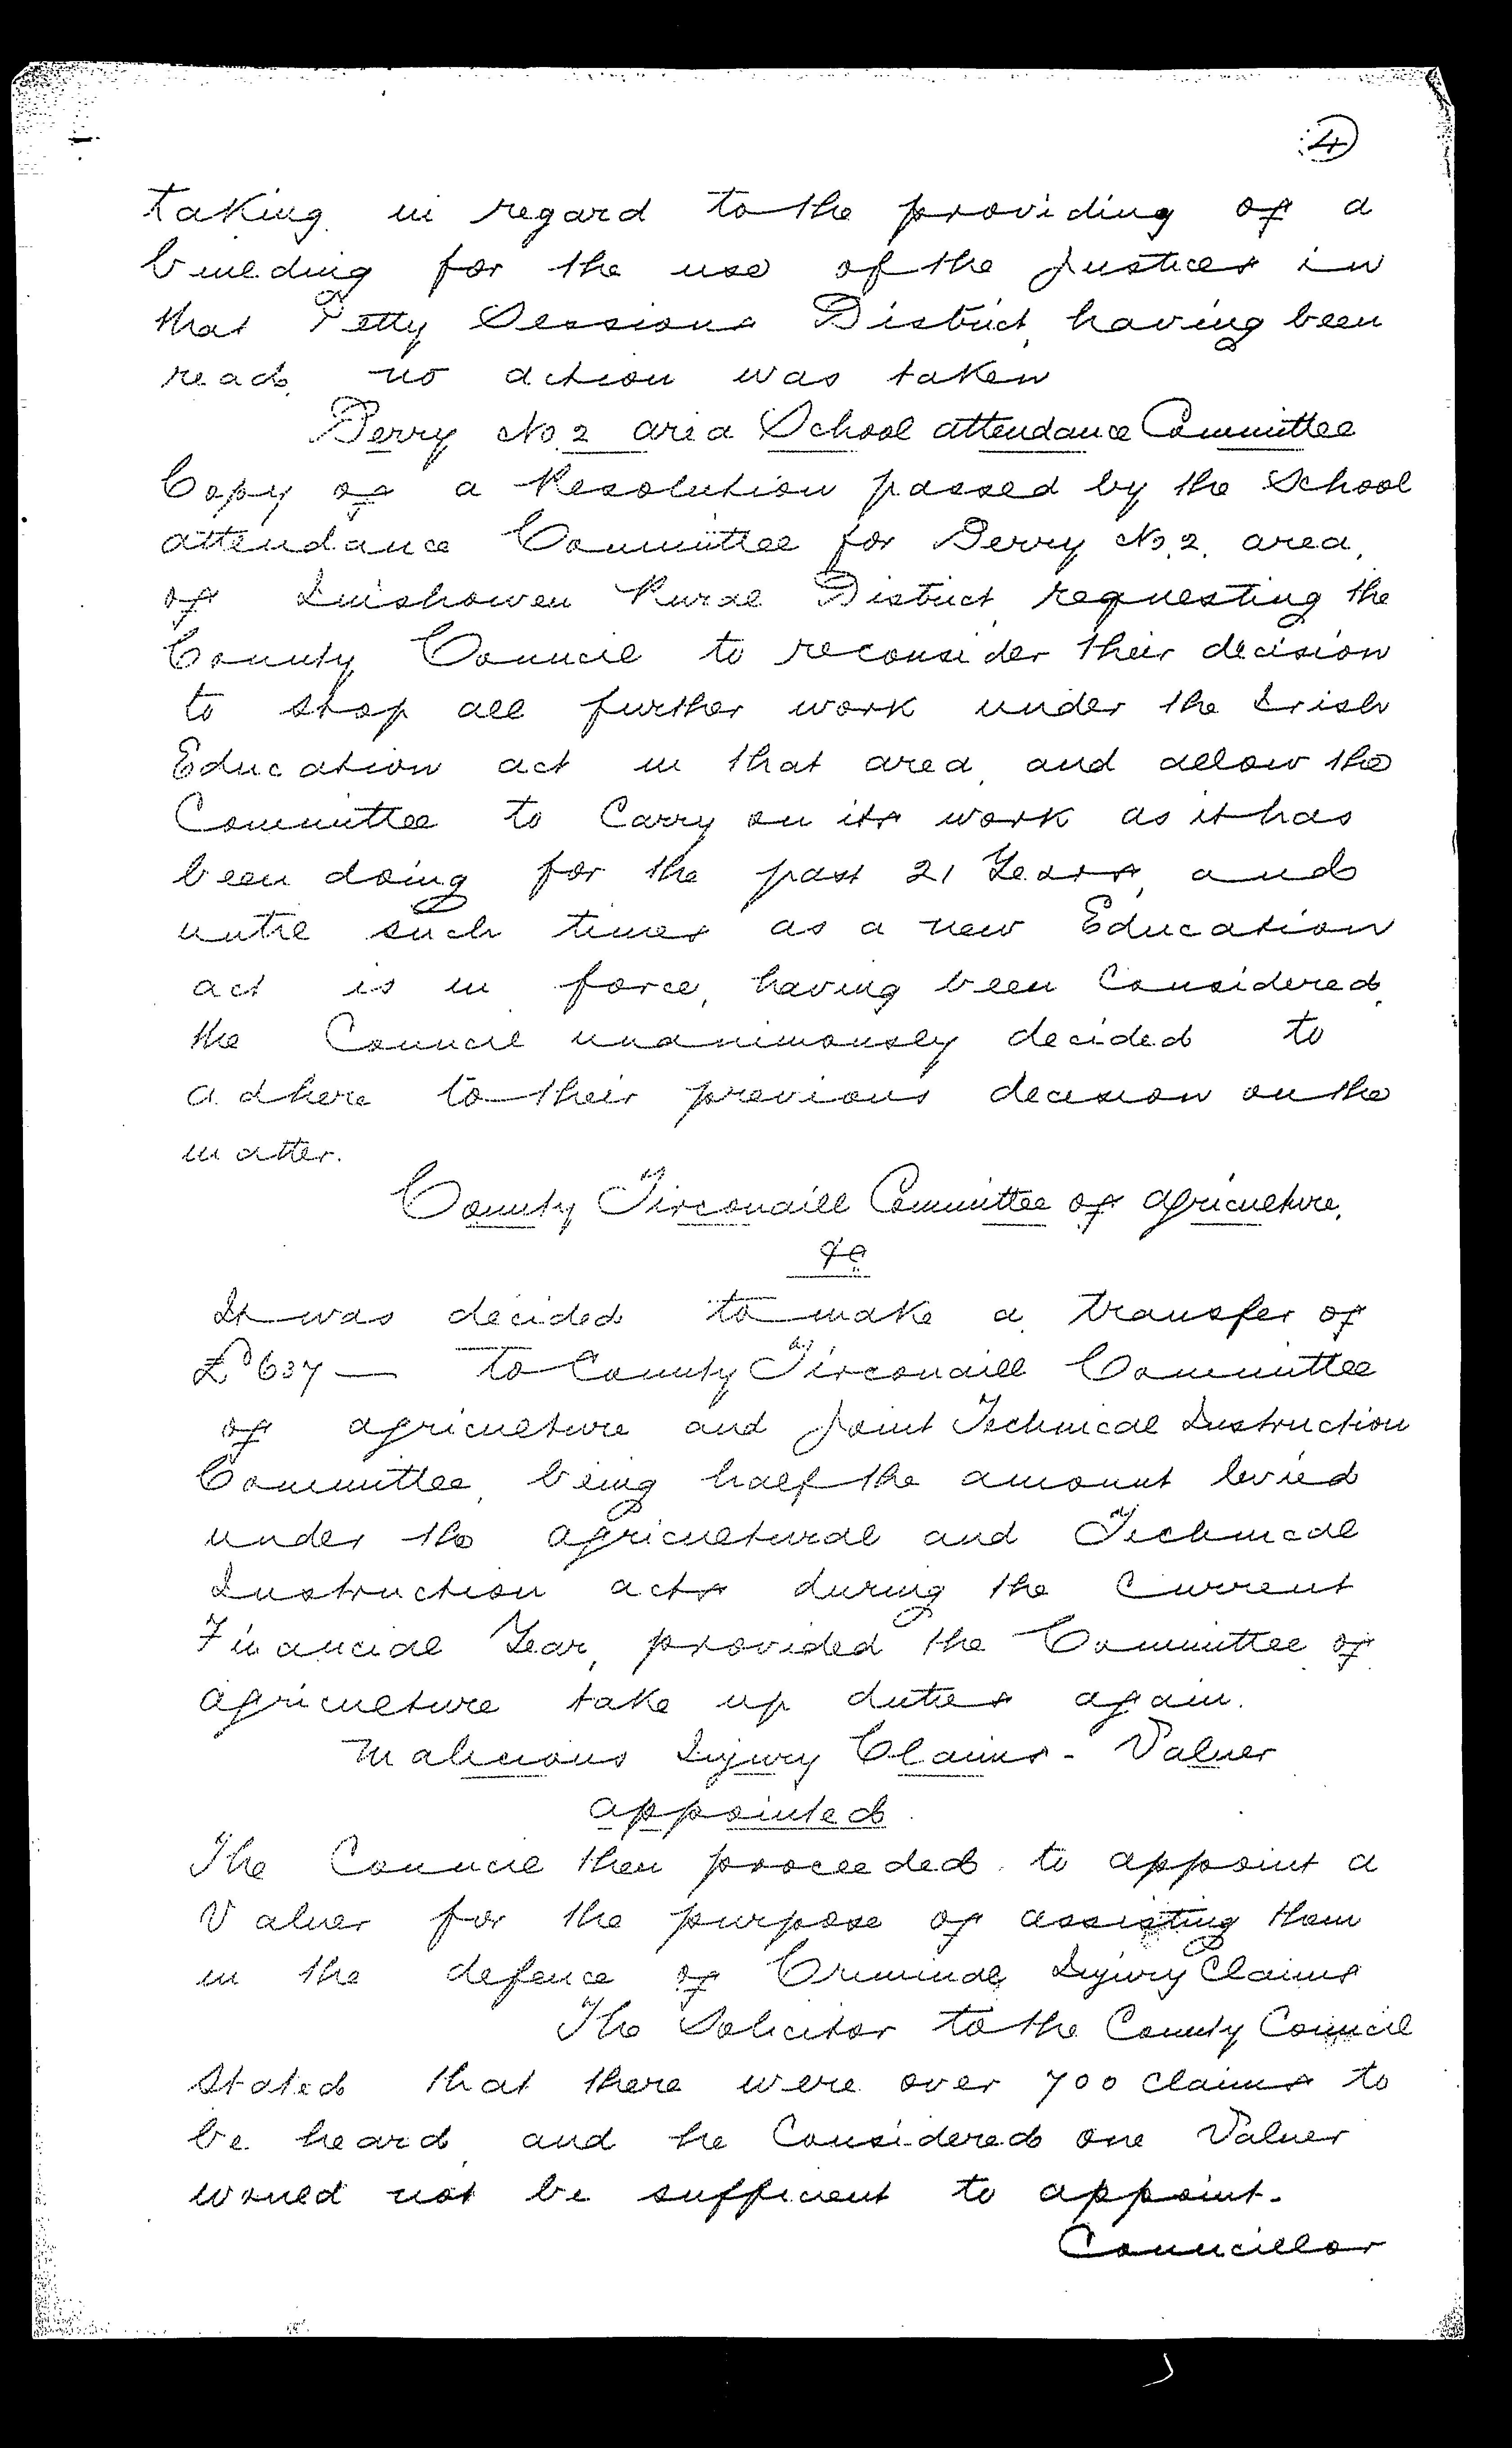 4
taking in regard to the providing of a
building for the use of the Justices in
that Petty Sessions District, having been
read, no action was taken
Derry No. 2 area School attendance Committee
Copy of a Resolution passed by the School
attendance Committee for Derry No. 2. area,
of Inishowen Rural District, requesting the
County Council to reconsider their decision
to stop all further work under the Irish
Education act in that area, and allow the
Committee to Carry on its work as it has
been doing for the past 21 Years, and
until such times as a new Education
act is in force, having been Considered,
the Council unanimously decided to
adhere to their previous decision on the
matter.
County Tirconaill Committee of agriculture,
&c
It was decided to make a transfer of
£637 — to County Tirconaill Committee
of agriculture and Joint Technical Instruction
Committee, being half the amount levied
under the agricultural and Technical
Instruction acts during the Current
Financial Year, provided the Committee of
agriculture take up duties again.
Malicious Injury Claims - Valuer
appointed
The Council then proceeded to appoint a
Valuer for the purpose of assisting them
in the defence of Criminal Injury Claims
The Solicitor to the County Council
stated that there were over 700 claims to
be heard, and he Considered one Valuer
would not be sufficient to appoint.
Councillor